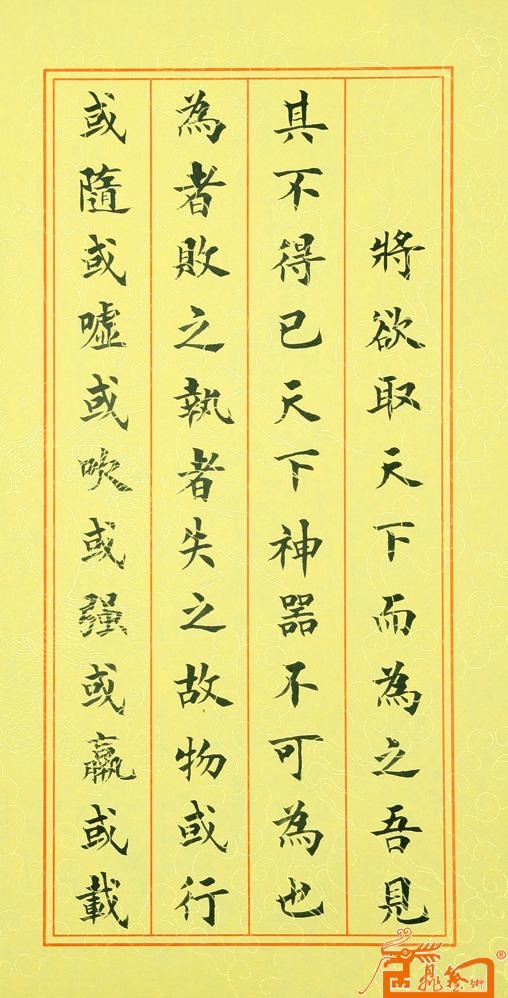 將欲取天下而為之吾見
其不得已天下神器不可為也
為者敗之執者失之故物或行
或隨或噓或吹或强或羸或載